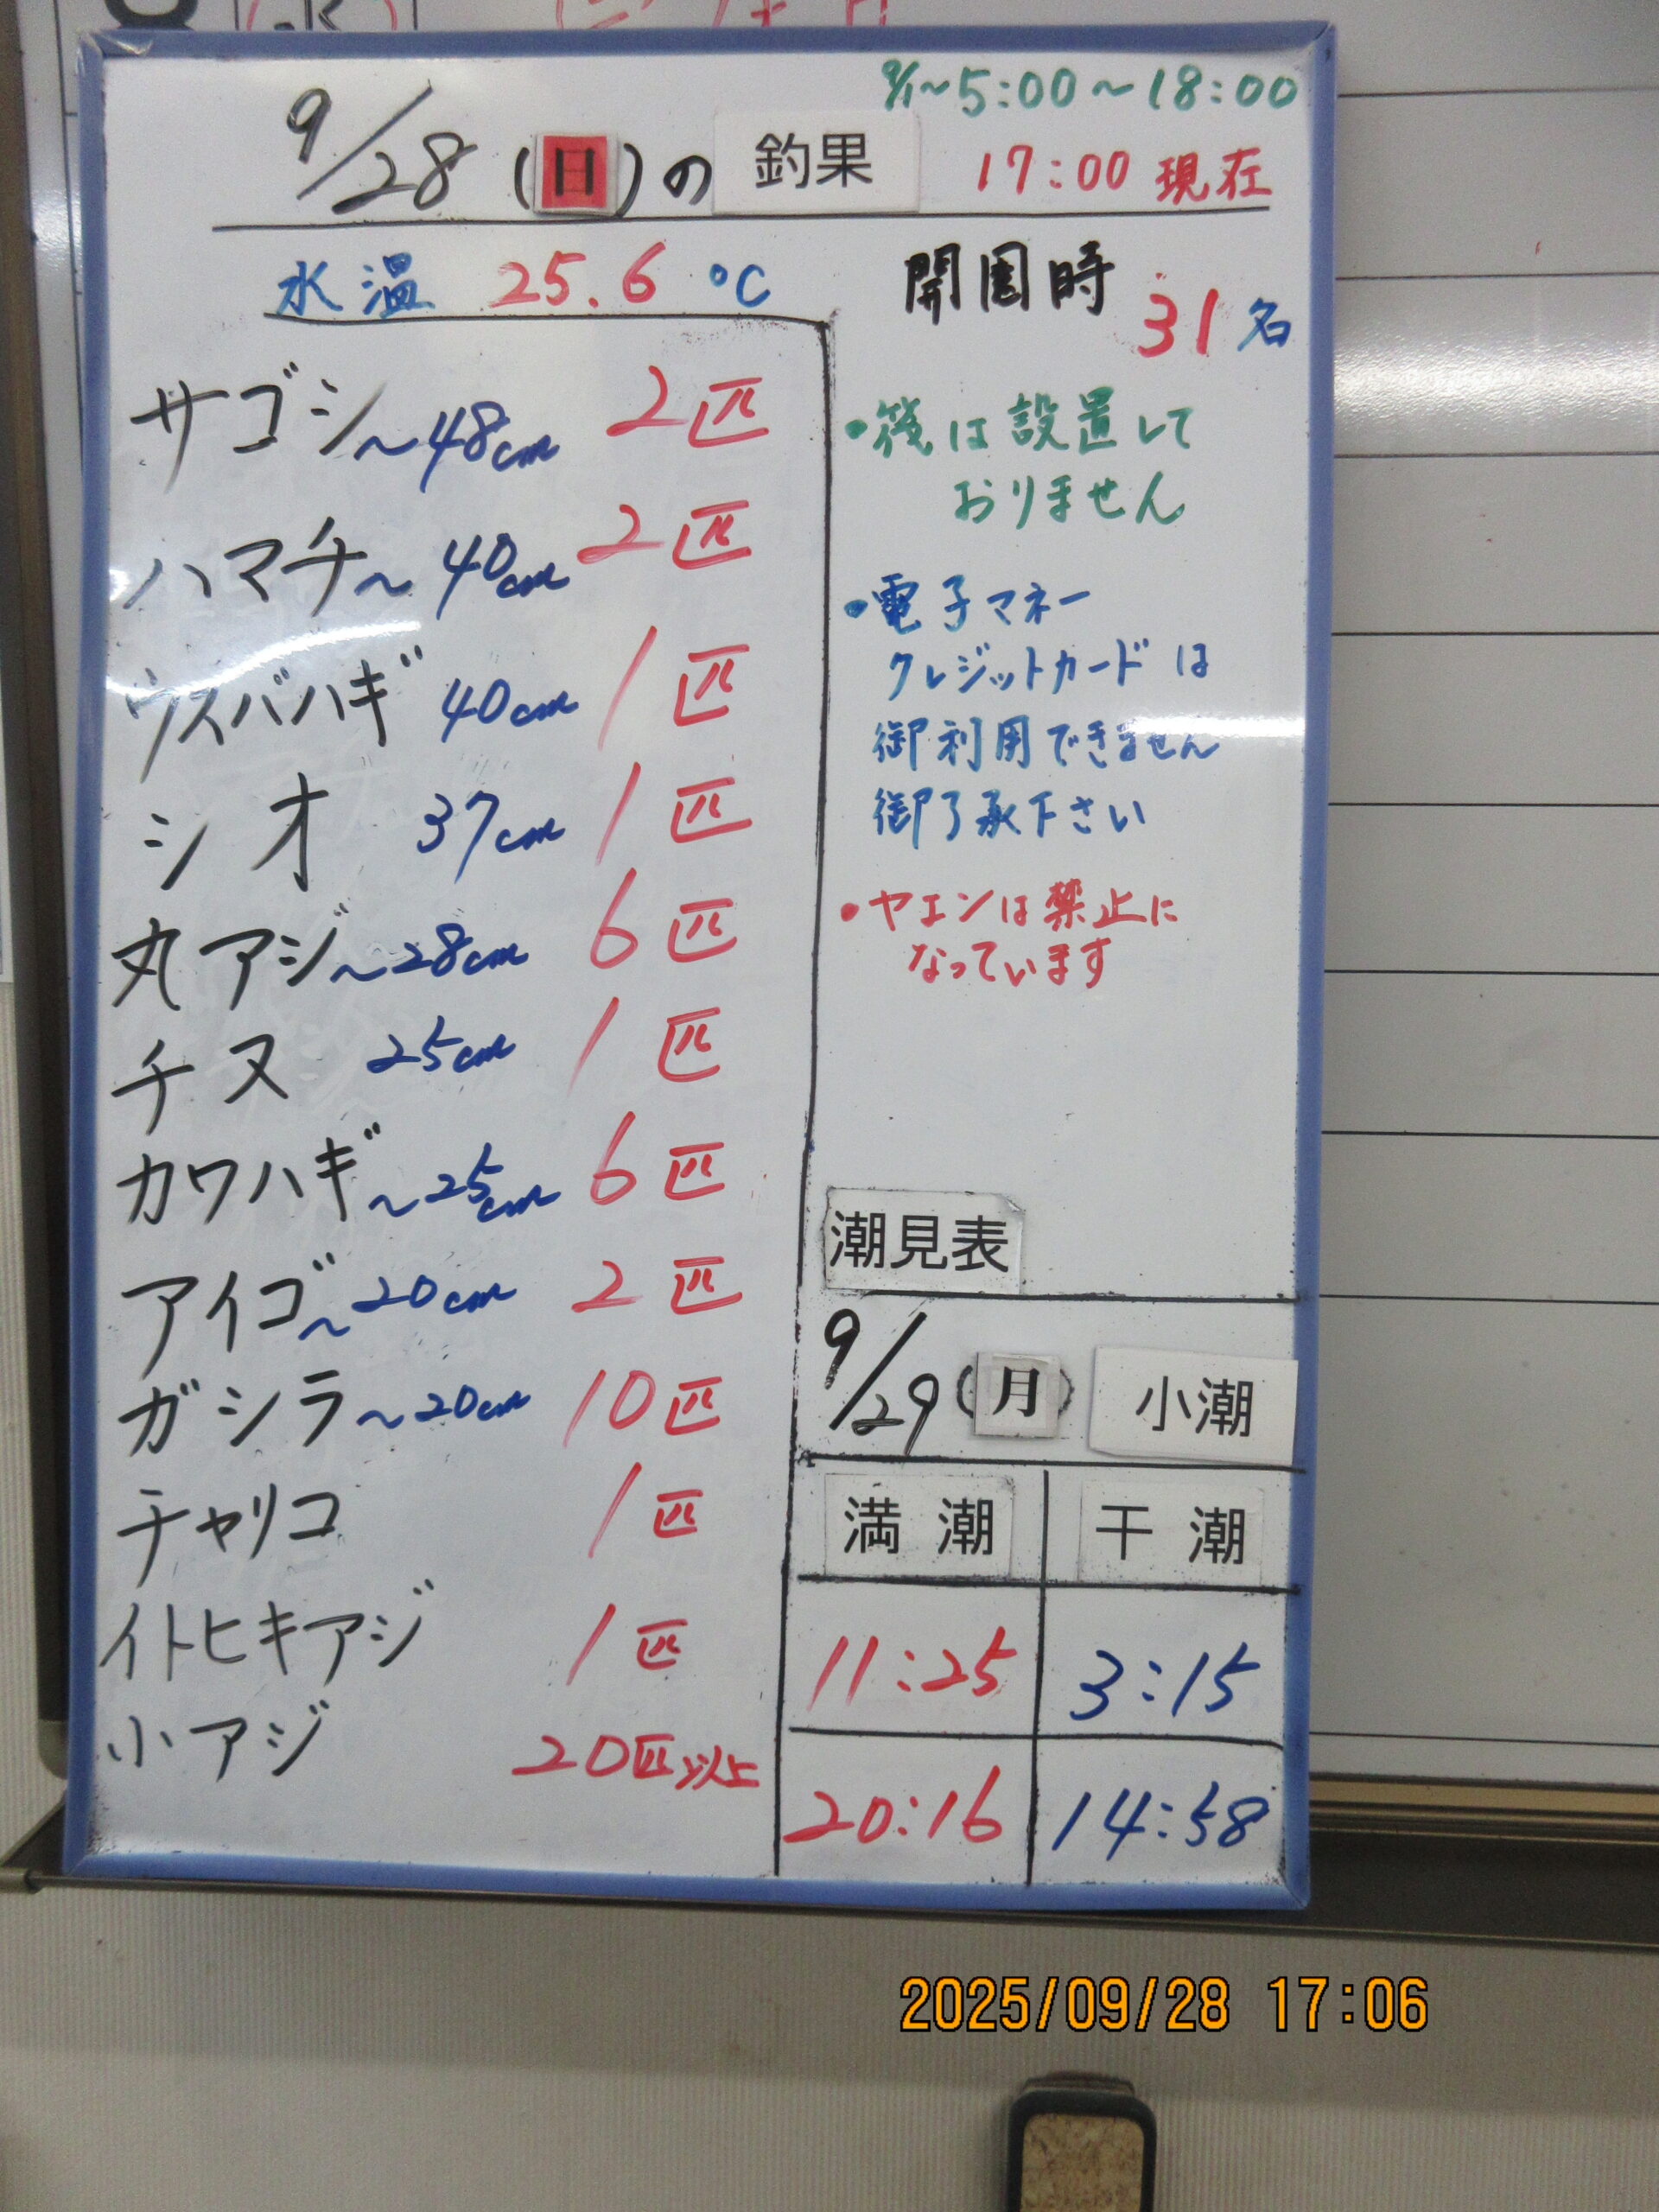 9/1～5:00～18:00
9/28(日)の釣果 17:00現在
水温 25.6℃
開園時 31名
サゴシ～48cm 2匹
ハマチ～40cm 2匹
ウスバハギ 40cm 1匹
シオ 37cm 1匹
丸アジ～28cm 6匹
チヌ 25cm 1匹
カワハギ～25cm 6匹
アイゴ～20cm 2匹
ガシラ～20cm 10匹
チャリコ 1匹
イトヒキアジ 1匹
小アジ 20匹以上
・筏は設置して
おりません
・電子マネー
クレジットカードは
御利用できません
御了承下さい
・ヤエンは禁止に
なっています
潮見表
9/29(月) 小潮
満潮 干潮
11:25 3:15
20:16 14:58
2025/09/28 17:06